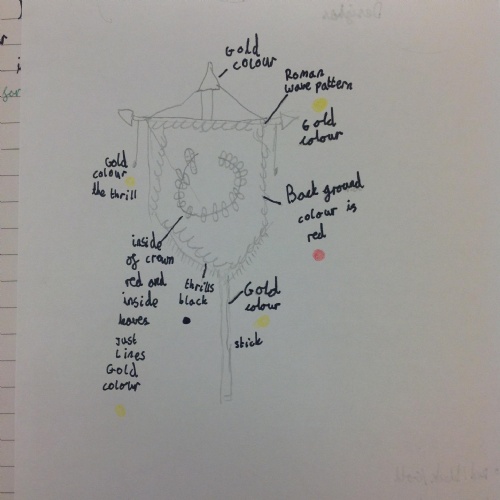 Gold
colour
Roman
wave pattern
Gold
colour
Gold
colour
the thrill
Back ground
colour is
red
inside
of crown
red and
inside
leaves
just
Lines
Gold
colour
thrills
black
Gold
colour
stick
Designer